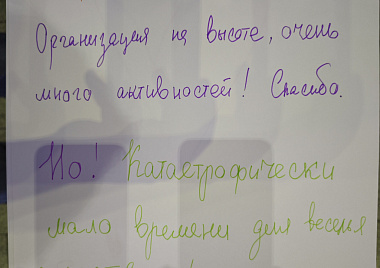 Организация на высоте, очень
много активностей! Спасибо.
Но! Катастрофически
мало времени для веселья